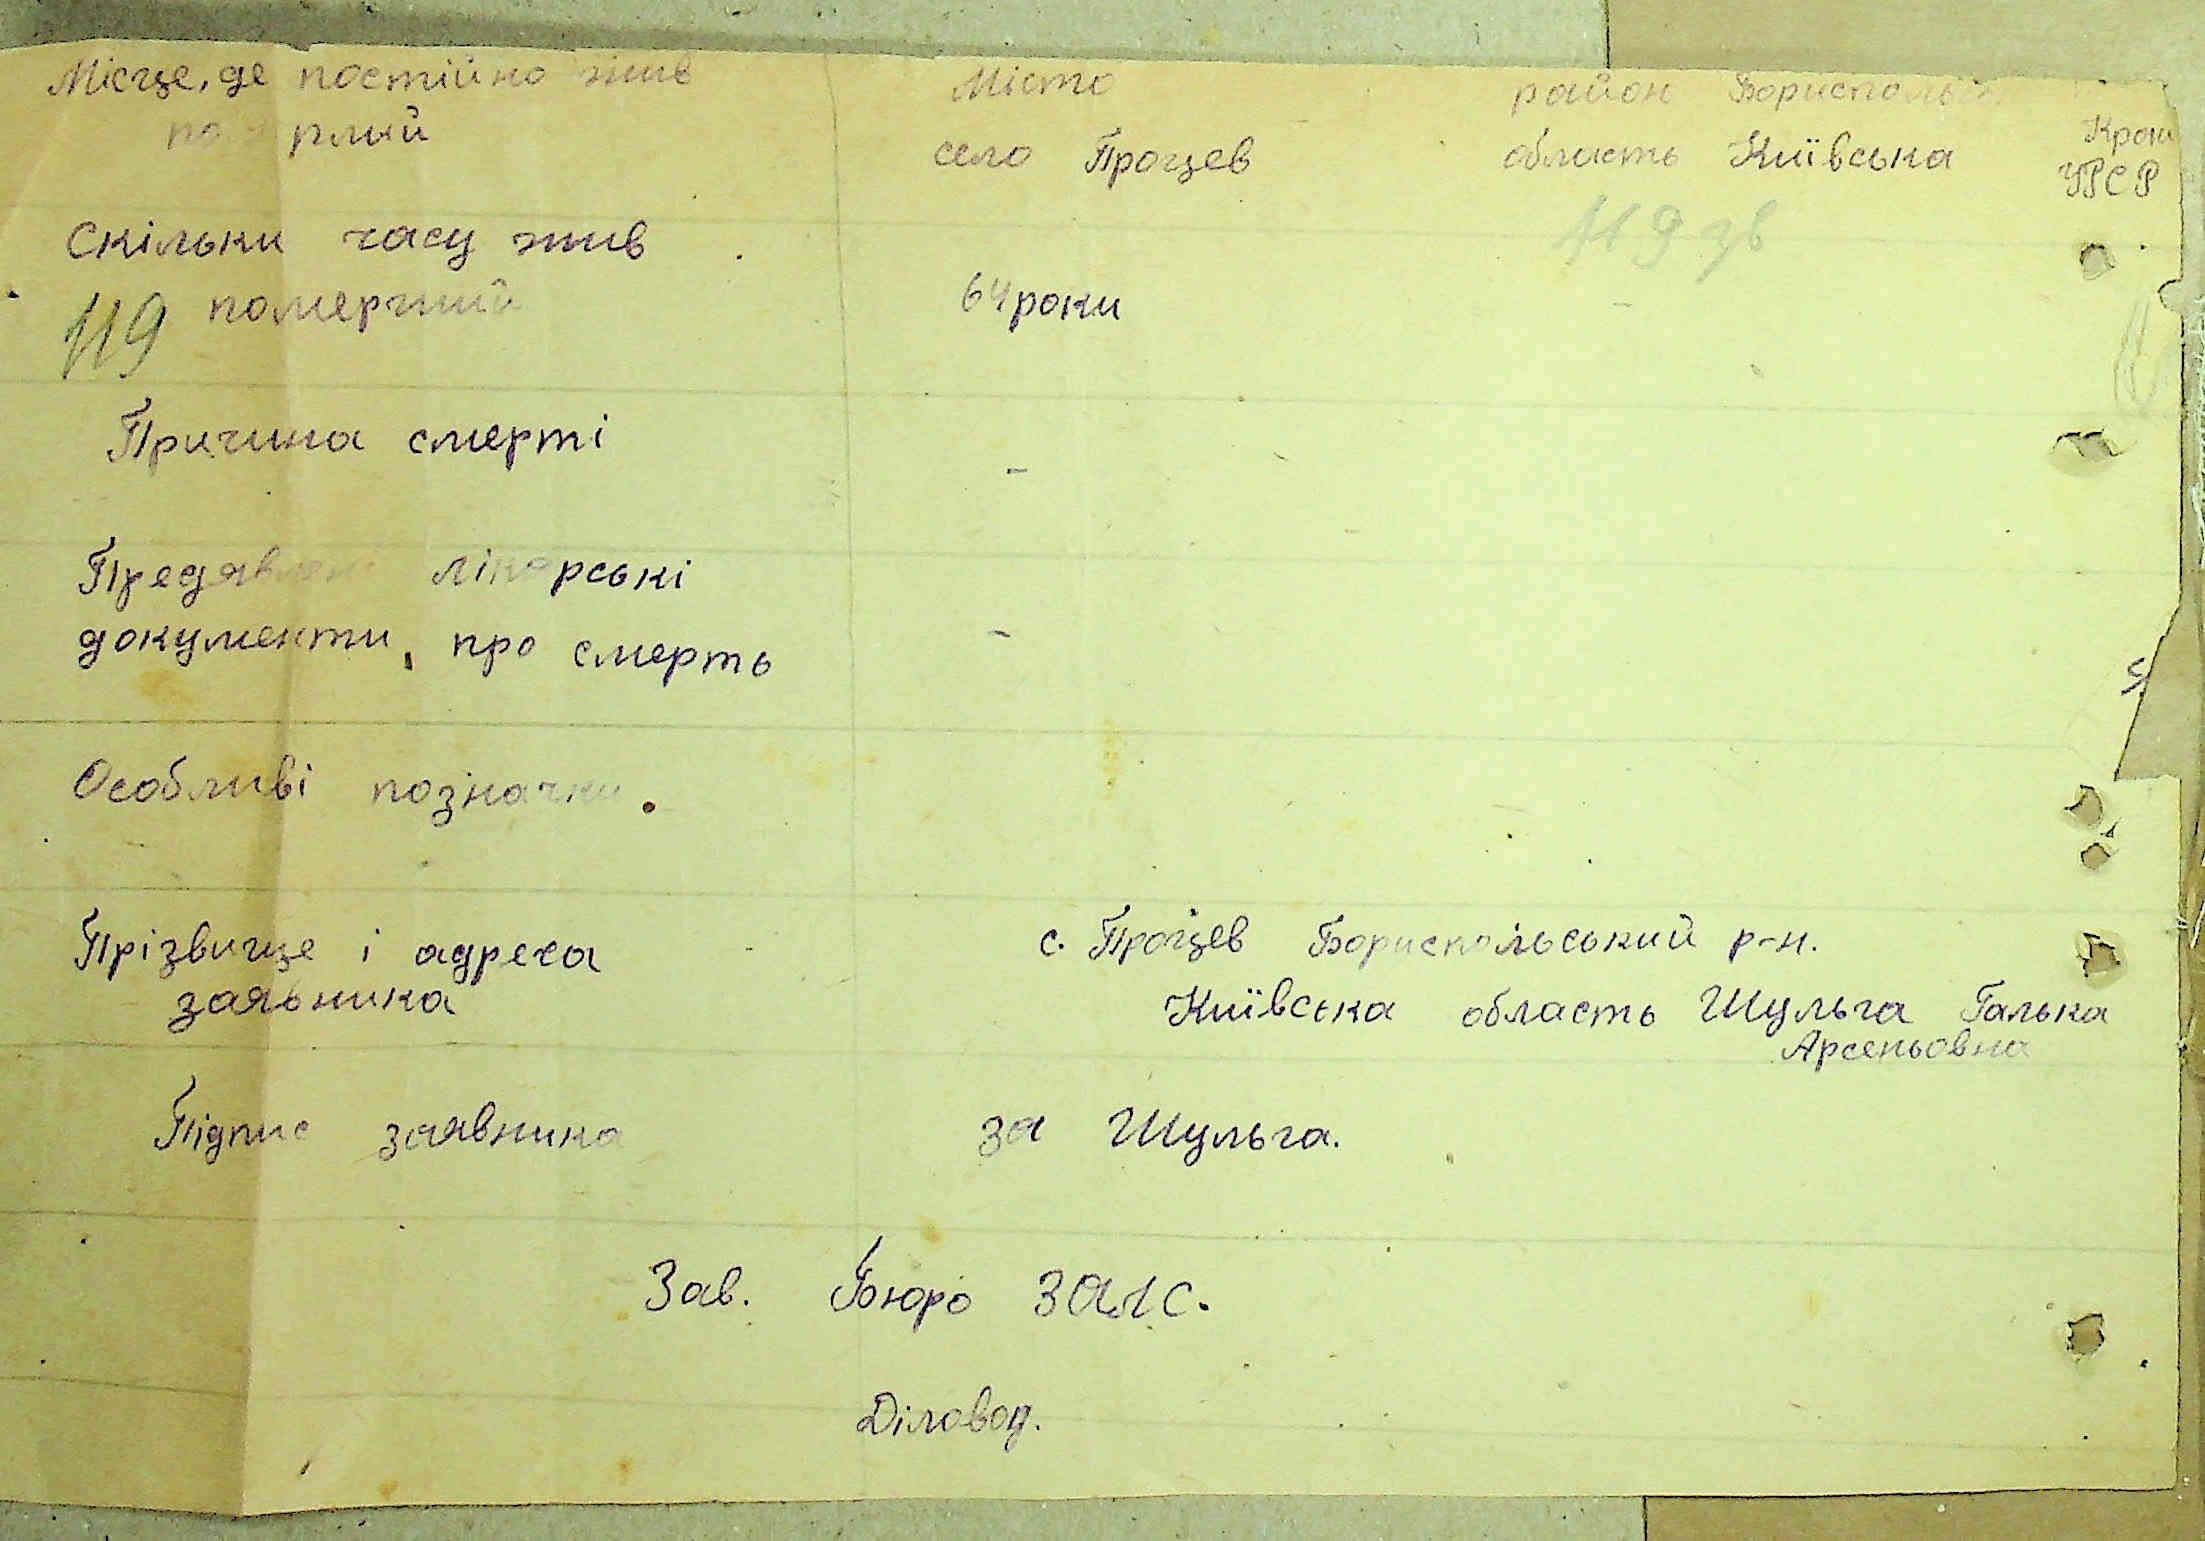 Місце, де постійно жив Місто район Бориспольськ
померлий село Процев область Київська Краї
УРСР
Скільки часу жив 119 зв
119 померший 64 роки -
Причина смерті -
Предявлені лікарські
документи, про смерть -
Особливі позначки.
Прізвище і адреса с. Процев Бориспольський р-н.
заявника Київська область Шульга Галька
Арсеньовна
Підпис заявника за Шульга.
Зав. Бюро ЗАГС.
Діловод.